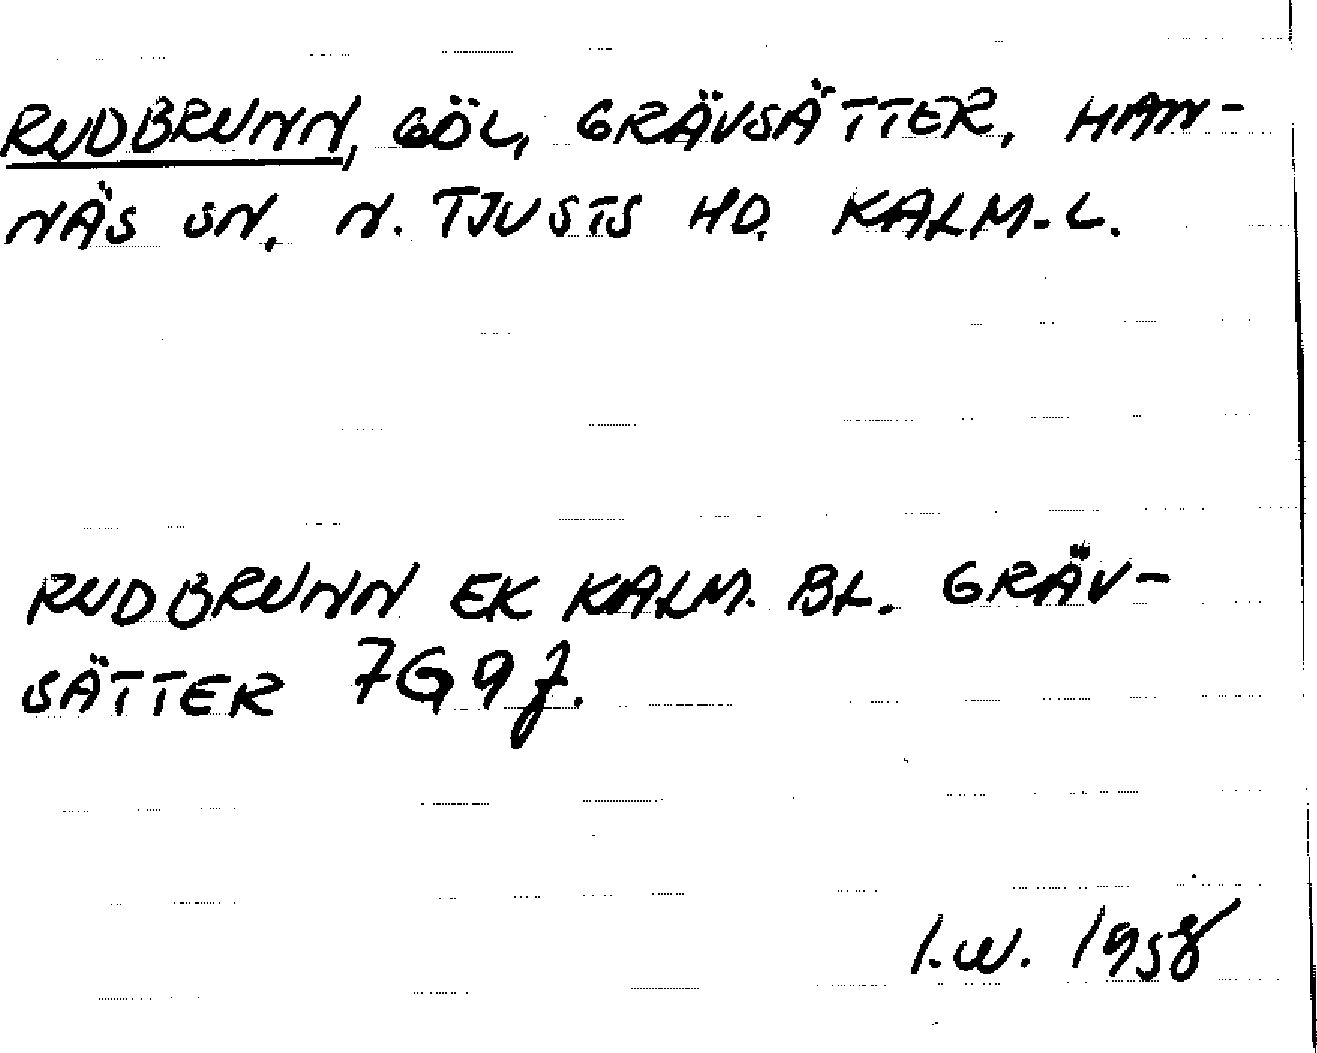 RUDBRUNN, GÖL, GRÄVSÄTTER, HAN-
NÄS SN. N. TJUSTS HD. KALM. L.
RUDBRUNN EK KALM. BL. GRÄV-
SÄTTER 7G9f.
I.W. 1958